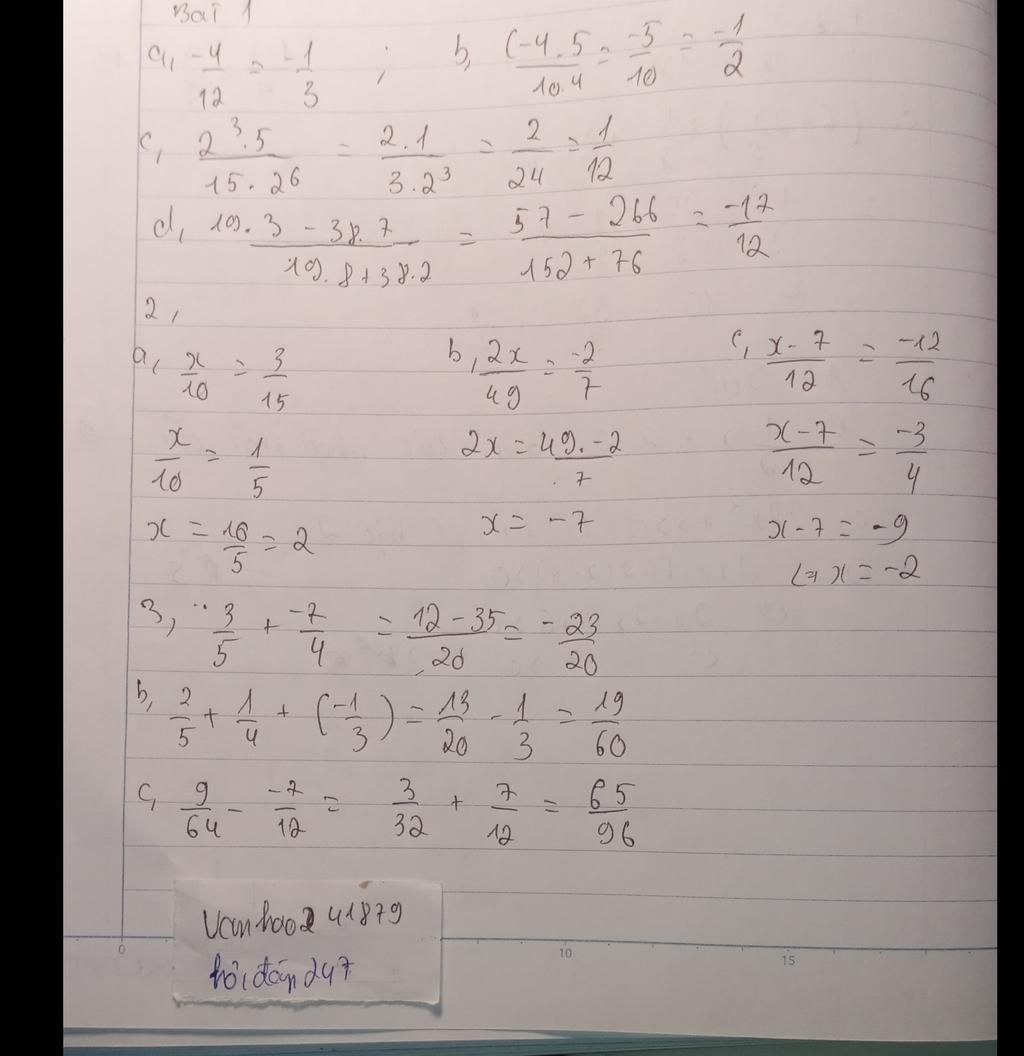 Bài 1
a, -4/12 = -1/3 ; b, (-4.5/10.4 = -5/10 = -1/2
c, 2³.5/15.2⁶ = 2.1/3.2³ = 2/24 = 1/12
d, 19.3 - 38.7/19.8+38.2 = 57 - 266/152 + 76 = -17/12
2,
a, x/10 = 3/15 b, 2x/49 = -2/7 c, x-7/12 = -12/16
x/10 = 1/5 2x = 49.-2/7 x-7/12 = -3/4
x = 10/5 = 2 x = -7 x-7 = -9
<=> x = -2
3, 3/5 + -7/4 = 12-35/20 = -23/20
b, 2/5 + 1/4 + (-1/3) = 13/20 - 1/3 = 19/60
c, 9/64 - -7/12 = 3/32 + 7/12 = 65/96
Vanhao2 41879
hỏi đáp 247
0 10 15